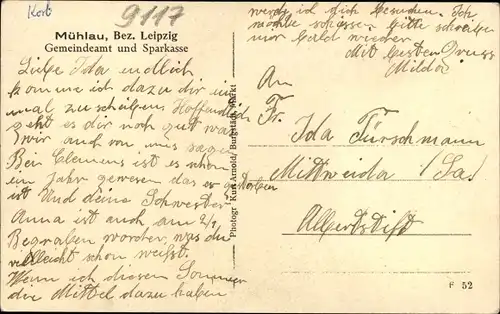 Korb
9117
Mühlau, Bez. Leipzig
Gemeindeamt und Sparkasse
Liebe Ida endlich
komme ich dazu dir ein
mal zu schreiben Hoffendlich
geht es dir noch gut was
wir auch von uns sagen
Bei Clemens ist es schon
ein Jahr gewesen das er gestorben
ist Und deine Schwester
Anna ist auch am 2/1
Begraben worden, was du
vielleicht schon weißt.
Wenn ich diesen Sommer
die Mittel dazu haben
werde ich dich besuchen. Ich
möchte schliessen Bitte schreibe
mir bald wieder
Mit besten Gruss
Milda
Photogr. Kurt Arnold, Burgstädt, Markt
An
Fr.
Ida Türschmann
Mittweida /Sa.
Albertstift
F 52